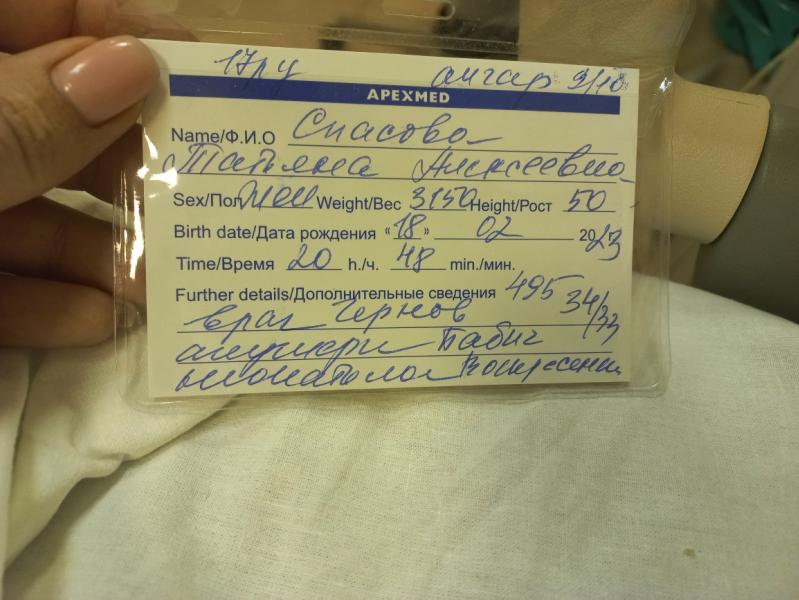 17 ру апгар 9/10
APEXMED
Name/Ф.И.О Спасова
Татьяна Алексеевна
Sex/Пол жен Weight/Вес 3150 Height/Рост 50
Birth date/Дата рождения «18» 02 2023
Time/Время 20 h./ч. 48 min./мин.
Further details/Дополнительные сведения 495 34/33
врач Чернов
акушерк Бабич
неонатолог Воскресенск